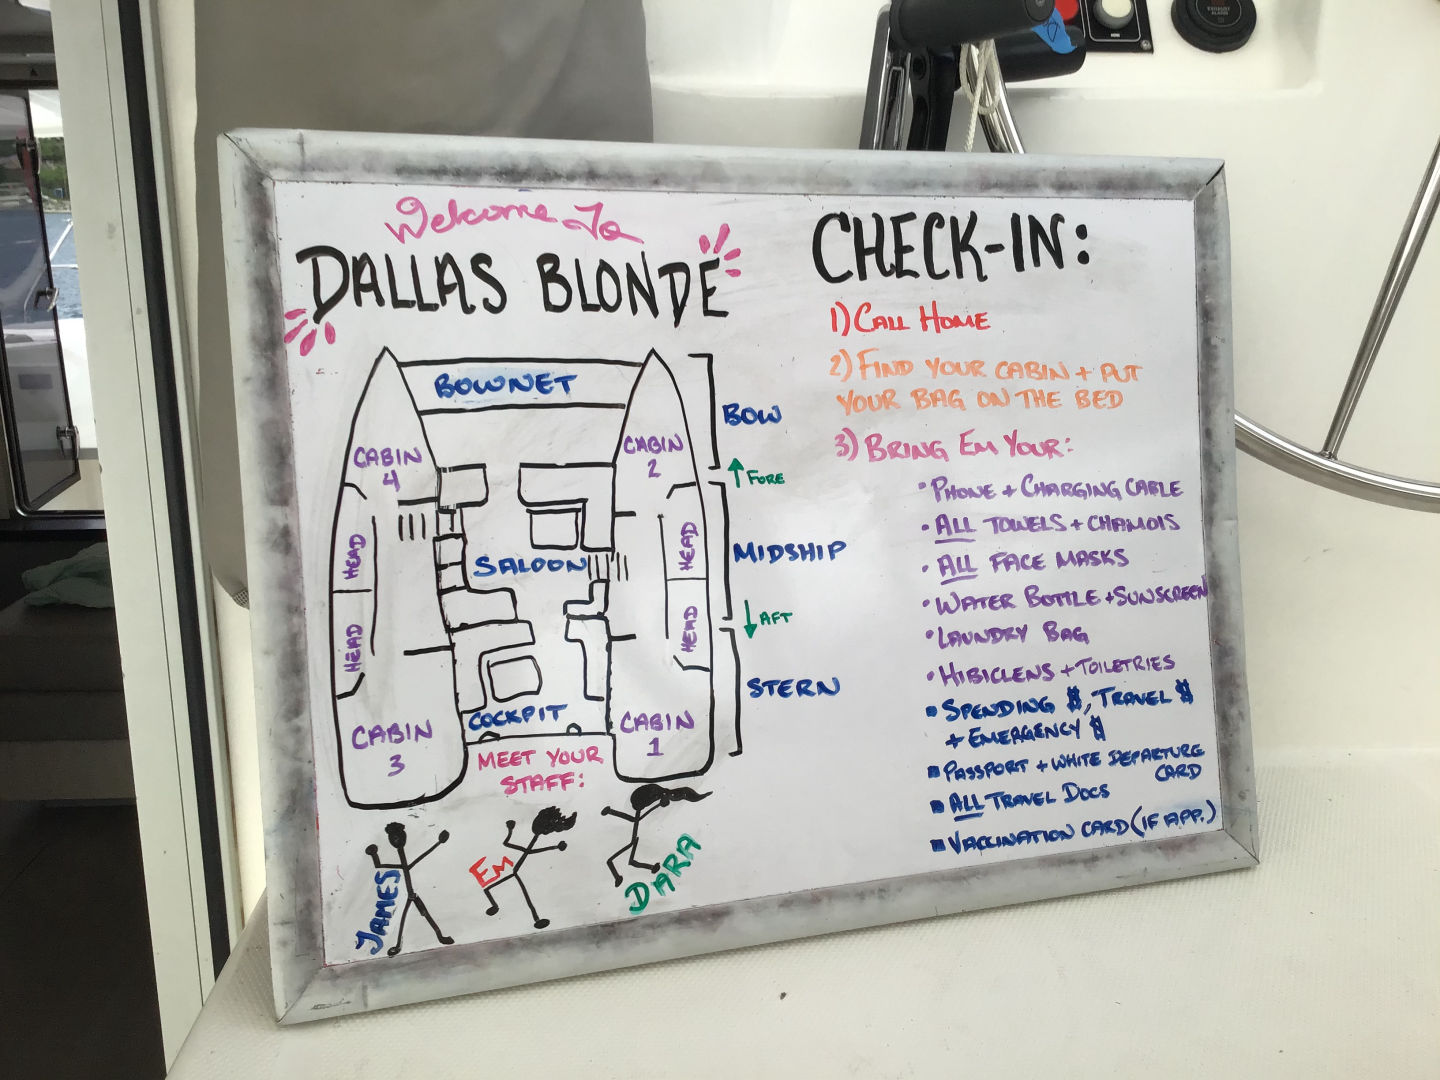 Welcome To
DALLAS BLONDE
BOWNET
BOW
CABIN
4
CABIN
2
↑ FORE
HEAD
SALOON
HEAD
MIDSHIP
HEAD
HEAD
↓ AFT
STERN
CABIN
3
COCKPIT
CABIN
1
MEET YOUR
STAFF:
JAMES
EM
DARA
CHECK-IN:
1) CALL HOME
2) FIND YOUR CABIN + PUT
YOUR BAG ON THE BED
3) BRING EM YOUR:
• PHONE + CHARGING CABLE
• ALL TOWELS + CHAMOIS
• ALL FACE MASKS
• WATER BOTTLE + SUNSCREEN
• LAUNDRY BAG
• HIBICLENS + TOILETRIES
▪ SPENDING $, TRAVEL $
+ EMERGENCY $
▪ PASSPORT + WHITE DEPARTURE
CARD
▪ ALL TRAVEL DOCS
▪ VACCINATION CARD (IF APP.)